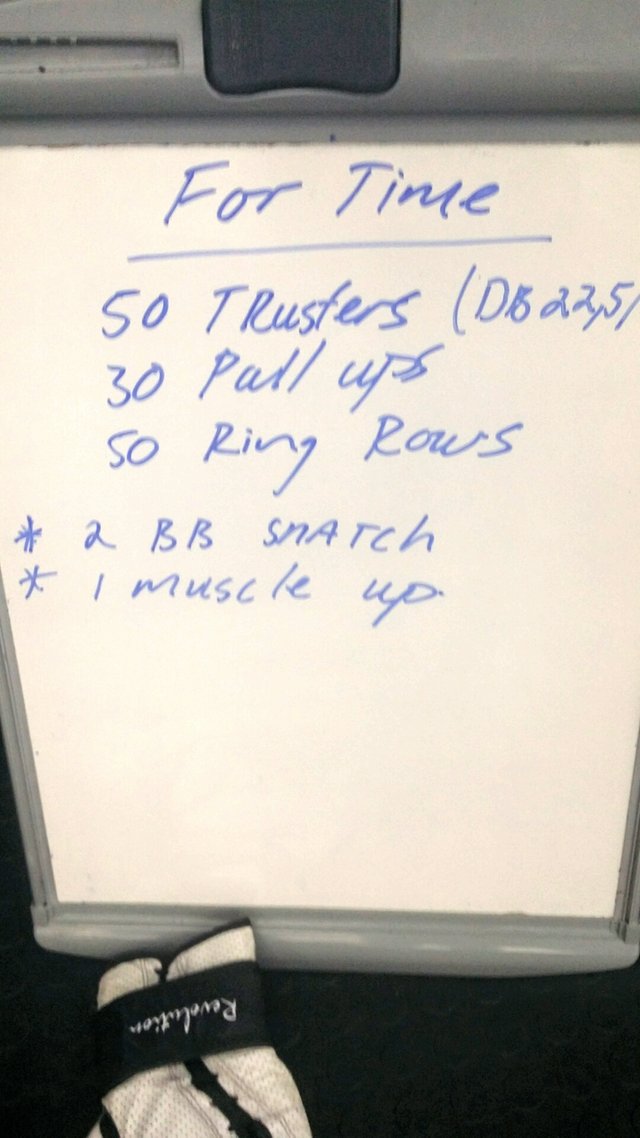 For Time
50 TRusters (DB 22,5)
30 Pull ups
50 Ring Rows
* 2 BB SNATch
* 1 muscle up.
Revolution